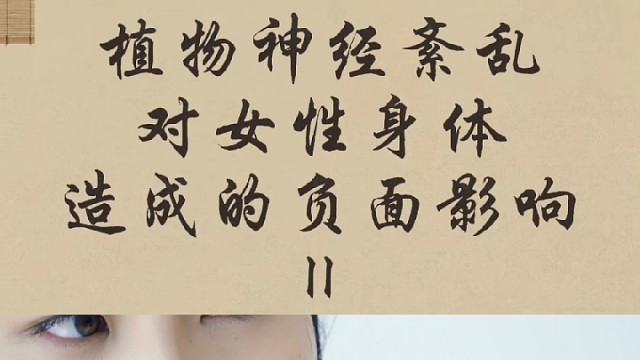 植物神经紊乱
对女性身体
造成的负面影响
||